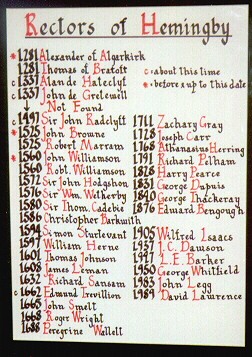 Rectors of Hemingby
*1281 Alexander of Algarkirk
1281 Thomas of Bratoft
c1337 Alan de Hateclyf
c1337 John de Gretewell
↓ Not Found
c1497 Sir John Radclyff
*1525 John Browne
1525 Robert Marram
*1560 John Williamson
1560 Robt. Williamson
1572 Sir John Hodgshon
1576 Sir Wm. Wetherby
1580 Sir Thom. Cadebie
1586 Christopher Barkwith
1594 Simon Sturtevant
1597 William Herne
1601 Thomas Johnson
1608 James Leman
1632 Richard Sansam
c1662 Edmund Trevillion
1665 John Smelt
1668 Roger Wright
1688 Peregrine Wallett
c = about this time
* = before & up to this date
1711 Zachary Gray
1728 Joseph Carr
1768 Athanasius Herring
1791 Richard Pelham
1828 Harry Pearce
1831 George Dapuis
1840 George Thackeray
1876 Edward Bengough
1905 Wilfred Isaacs
1937 J.C. Dawson
1947 L.E. Barker
1950 George Whitfield
1983 John Legg
1989 David Lawrence